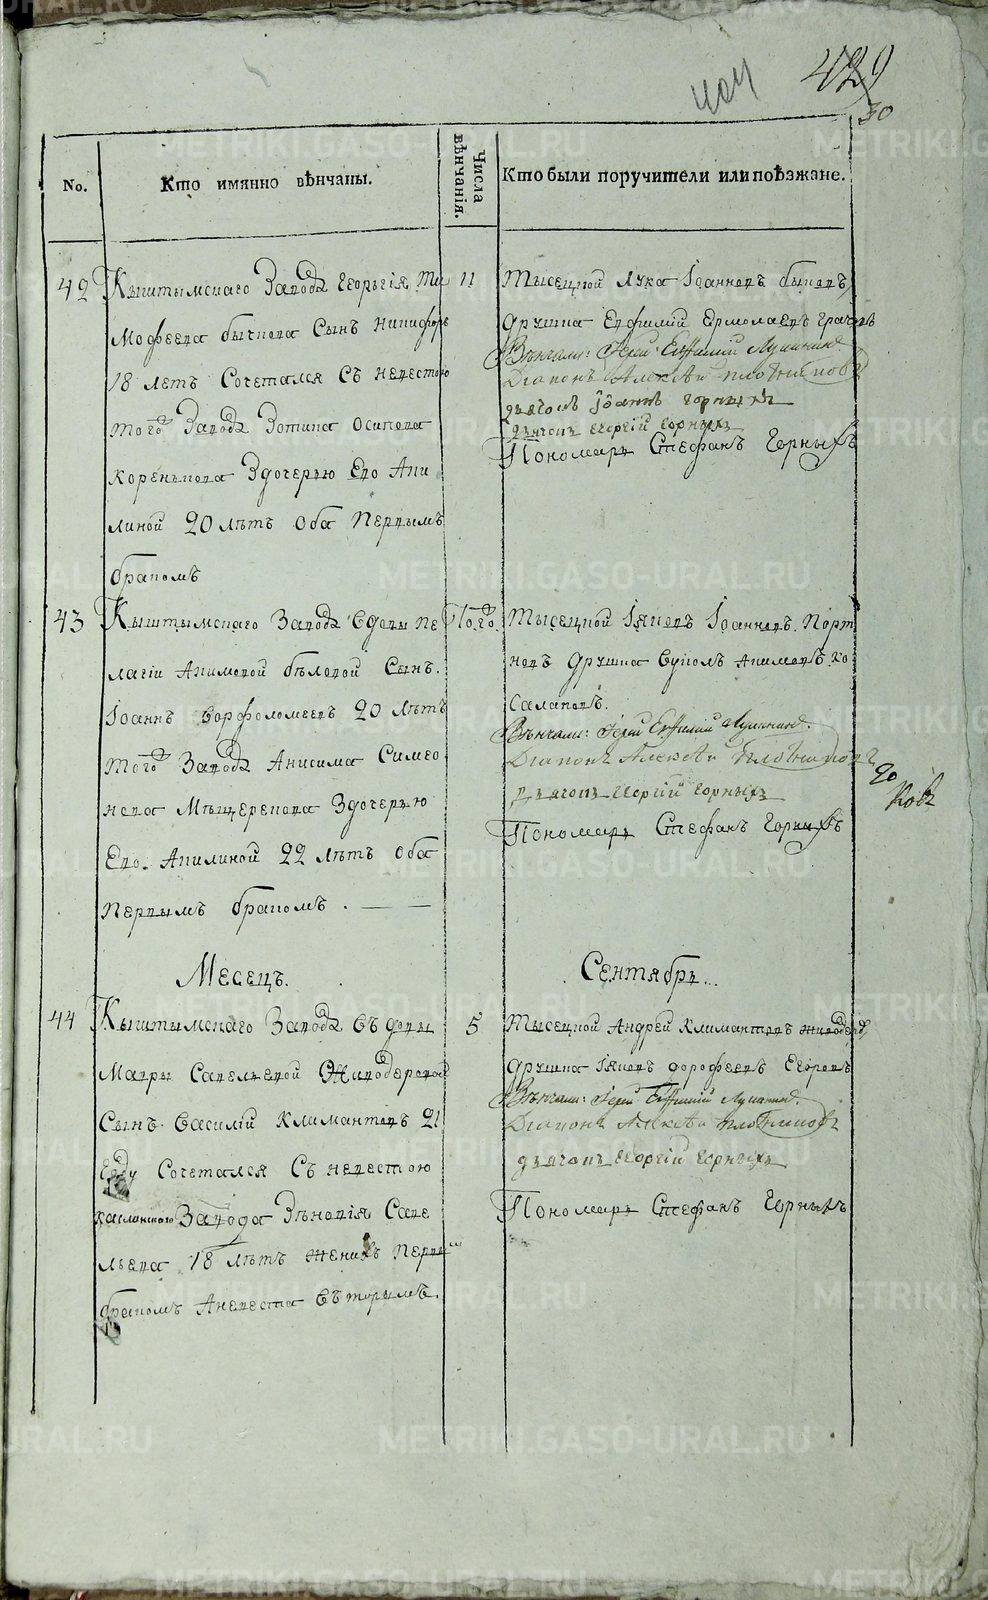 404
429
30
No.
Кто имянно вѣнчаны.
Числа вѣнчанія.
Кто были поручители или поѣзжане.
42
Кыштымскаго Завода Георьгія Ти
мофеева бычкова Сынъ Никифоръ
18 летъ Сочетался Съ невестою
того Завода Зотика Осипова
коренькова Здочерью Его Аки
линой 20 лѣтъ Оба Первымъ
бракомъ
11
Тысецкой Лука Іоанновъ быковъ,
дружка Евфимій Ермолаевъ грачевъ
Вѣнчали: Іерей Евфимій Лукинъ
Діаконъ Алексѣй Плотниковъ
дьячокъ Іоаннъ горныхъ
дьячокъ Георгій горныхъ
Пономарь Стефанъ Горныхъ
43
Кыштымскаго Завода вдовы пе
лагіи Акимовой бѣловой Сынъ.
Іоаннъ ворфоломеевъ 20 лѣтъ
того Завода Анисима Симео
нова Мѣщерекова Здочерью
Его. Акилиной 22 лѣтъ Оба
Первымъ бракомъ.
Того.
Тысецкой Іяковъ Іоанновъ. Порт
новъ дружка Вуколъ Акимовъ ко
салаповъ.
Вѣнчали: Іерей Евфимій
Діаконъ Алексѣй Плотниковъ
дьячокъ Георгій горныхъ
Пономарь Стефанъ Горныхъ
Месецъ.
Сентябрь..
44
Кыштымскаго Завода Въдовы
Мавры Савельевой Живодеровой
Сынъ Василій Климантовъ 21
году Сочетался Съ невестою
каслинского Завода Зѣновія Саве
льева 18 лѣтъ женихъ Первы
бракомъ Аневеста Въторымъ.
5
Тысецкой Андрей Климантовъ живодеровъ,
дружка Іяковъ дорофеевъ Егоровъ
Вѣнчали: Іерей Евфимій
Діаконъ Алексѣй Плотниковъ
дьячокъ Георгій горныхъ
Пономарь Стефанъ Горныхъ
METRIKI.GASO-URAL.RU